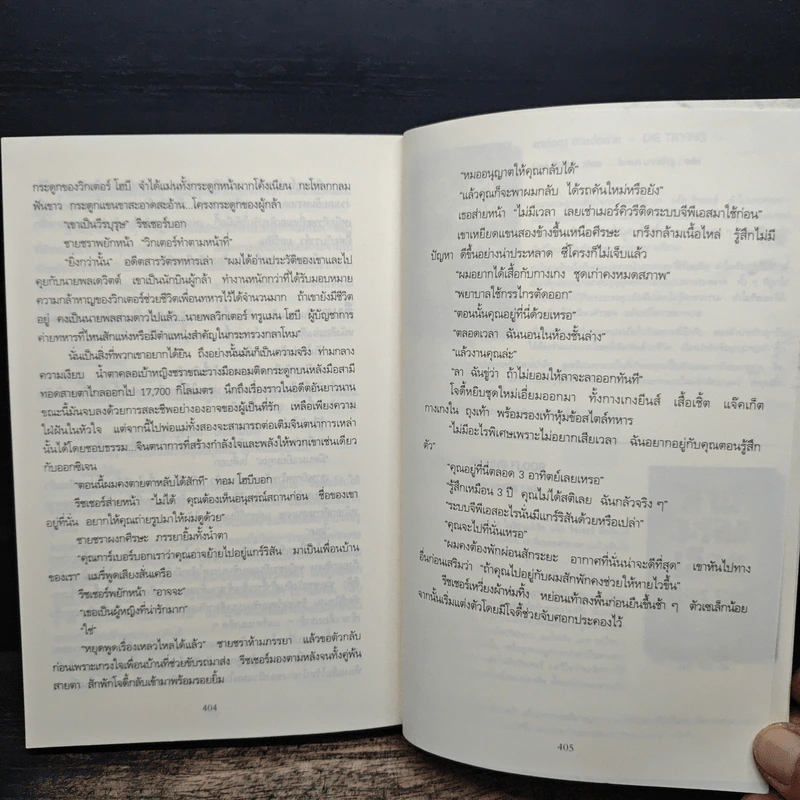 กระดูกของวิกเตอร์ โฮบี จำได้แม่นทั้งกระดูกหน้าผากโค้งเนียน กะโหลกกลม
ฟันขาว กระดูกแขนขาสะอาดสะอ้าน...โครงกระดูกของผู้กล้า
“เขาเป็นวีรบุรุษ” รีชเชอร์บอก
ชายชราพยักหน้า “วิกเตอร์ทำตามหน้าที่”
“ยิ่งกว่านั้น” อดีตสารวัตรทหารเล่า “ผมได้อ่านประวัติของเขาและไป
คุยกับนายพลเดวิตต์ เขาเป็นนักบินผู้กล้า ทำงานหนักกว่าที่ได้รับมอบหมาย
ความกล้าหาญของวิกเตอร์ช่วยชีวิตเพื่อนทหารไว้ได้จำนวนมาก ถ้าเขายังมีชีวิต
อยู่ คงเป็นนายพลสามดาวไปแล้ว...นายพลวิกเตอร์ ทรูแมน โฮบี ผู้บัญชาการ
ค่ายทหารที่ไหนสักแห่งหรือมีตำแหน่งสำคัญในกระทรวงกลาโหม”
นั่นเป็นสิ่งที่พวกเขาอยากได้ยิน ถึงอย่างนั้นมันก็เป็นความจริง ท่ามกลาง
ความเงียบ น้ำตาคลอเบ้าหญิงชราขณะวางมือผอมติดกระดูกบนหลังมือสามี
ทอดสายตาไกลออกไป 17,700 กิโลเมตร นึกถึงเรื่องราวในอดีตอันยาวนาน
ขณะนี้มันจบลงด้วยการสละชีพอย่างองอาจของผู้เป็นที่รัก เหลือเพียงความ
ใฝ่ฝันในหัวใจ แต่จากนี้ไปพ่อแม่ทั้งสองจะสามารถต่อเติมจินตนาการเหล่า
นั้นได้โดยชอบธรรม...จินตนาการที่สร้างกำลังใจและพลังให้พวกเขาเช่นเดียว
กับออกซิเจน
“ตอนนี้ผมคงตายตาหลับได้สักที” ทอม โฮบีบอก
รีชเชอร์ส่ายหน้า “ไม่ได้ คุณต้องเห็นอนุสรณ์สถานก่อน ชื่อของเขา
อยู่ที่นั่น อยากให้คุณถ่ายรูปมาให้ผมดูด้วย”
ชายชราผงกศีรษะ ภรรยายิ้มทั้งน้ำตา
“คุณการ์เบอร์บอกเราว่าคุณอาจย้ายไปอยู่แกร์ริสัน มาเป็นเพื่อนบ้าน
ของเรา” แมรี่พูดเสียงสั่นเครือ
รีชเชอร์พยักหน้า “อาจจะ”
“เธอเป็นผู้หญิงที่น่ารักมาก”
“ใช่”
“หยุดพูดเรื่องเหลวไหลได้แล้ว” ชายชราห้ามภรรยา แล้วขอตัวกลับ
ก่อนเพราะเกรงใจเพื่อนบ้านที่ช่วยขับรถมาส่ง รีชเชอร์มองตามหลังจนทั้งคู่พ้น
สายตา สักพักโจดี้กลับเข้ามาพร้อมรอยยิ้ม
404
“หมออนุญาตให้คุณกลับได้”
“แล้วคุณก็จะพาผมกลับ ได้รถคันใหม่หรือยัง”
เธอส่ายหน้า “ไม่มีเวลา เลยเช่าเมอร์คิวรีติดระบบจีพีเอสมาใช้ก่อน”
เขาเหยียดแขนสองข้างขึ้นเหนือศีรษะ เกร็งกล้ามเนื้อไหล่ รู้สึกไม่มี
ปัญหา ดีขึ้นอย่างน่าประหลาด ซี่โครงก็ไม่เจ็บแล้ว
“ผมอยากได้เสื้อกับกางเกง ชุดเก่าคงหมดสภาพ”
“พยาบาลใช้กรรไกรตัดออก”
“ตอนนั้นคุณอยู่ที่นี่ด้วยเหรอ”
“ตลอดเวลา ฉันนอนในห้องชั้นล่าง”
“แล้วงานคุณล่ะ”
“ลา ฉันขู่ว่า ถ้าไม่ยอมให้ลาจะลาออกทันที”
โจดี้หยิบชุดใหม่เอี่ยมออกมา ทั้งกางเกงยีนส์ เสื้อเชิ้ต แจ๊คเก็ต
กางเกงใน ถุงเท้า พร้อมรองเท้าหุ้มข้อสไตล์ทหาร
“ไม่มีอะไรพิเศษเพราะไม่อยากเสียเวลา ฉันอยากอยู่กับคุณตอนรู้สึก
ตัว”
“คุณอยู่ที่นี่ตลอด 3 อาทิตย์เลยเหรอ”
“รู้สึกเหมือน 3 ปี คุณไม่ได้สติเลย ฉันกลัวจริง ๆ”
“ระบบจีพีเอสอะไรนั่นมีแกร์ริสันด้วยหรือเปล่า”
“คุณจะไปที่นั่นเหรอ”
“ผมคงต้องพักผ่อนสักระยะ อากาศที่นั่นน่าจะดีที่สุด” เขาหันไปทาง
อื่นก่อนเสริมว่า “ถ้าคุณไปอยู่กับผมสักพักคงช่วยให้หายไวขึ้น”
รีชเชอร์เหวี่ยงผ้าห่มทิ้ง หย่อนเท้าลงพื้นก่อนยืนขึ้นช้า ๆ ตัวเซเล็กน้อย
จากนั้นเริ่มแต่งตัวโดยมีโจดี้ช่วยจับศอกประคองไว้
405